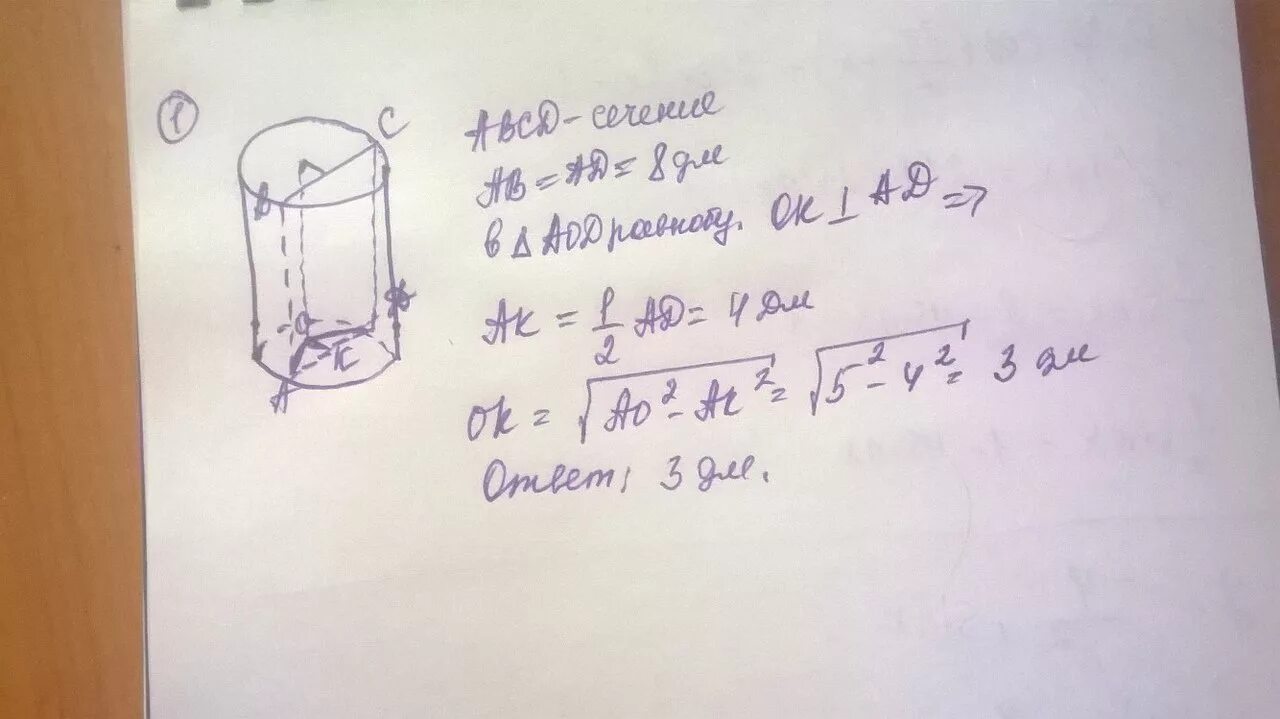 1
C
B
D
O
K
A
ABCD - сечение
AB = AD = 8 дм
в △ AOD равнобу. OK ⊥ AD =>
AK = 1/2 AD = 4 дм
OK = √(AO² - AK²) = √(5² - 4²) = 3 дм
Ответ: 3 дм.